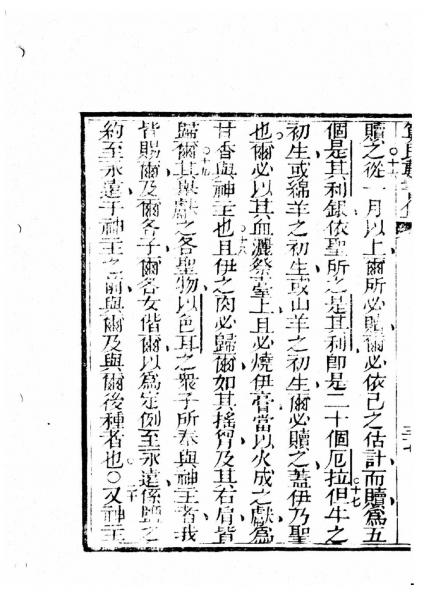 贖之從一月以上爾所必贖爾必依己之估計而贖為五
個是其利銀依聖所之是其利即是二十個厄拉但牛之
十七
初生或綿羊之初生或山羊之初生爾必贖之蓋伊乃聖
也爾必以其血灑祭臺上且必燒伊膏當以火成之獻為
甘香與神主也且伊之肉必歸爾如其搖胷及其右肩皆
十八
歸爾其舉獻之各聖物以色耳之眾子所奉與神主者我
十九
皆賜爾及爾各子爾各女偕爾以為定例至永遠係鹽之
約至永遠于神主之前與爾及與爾後種者也○又神主
二十